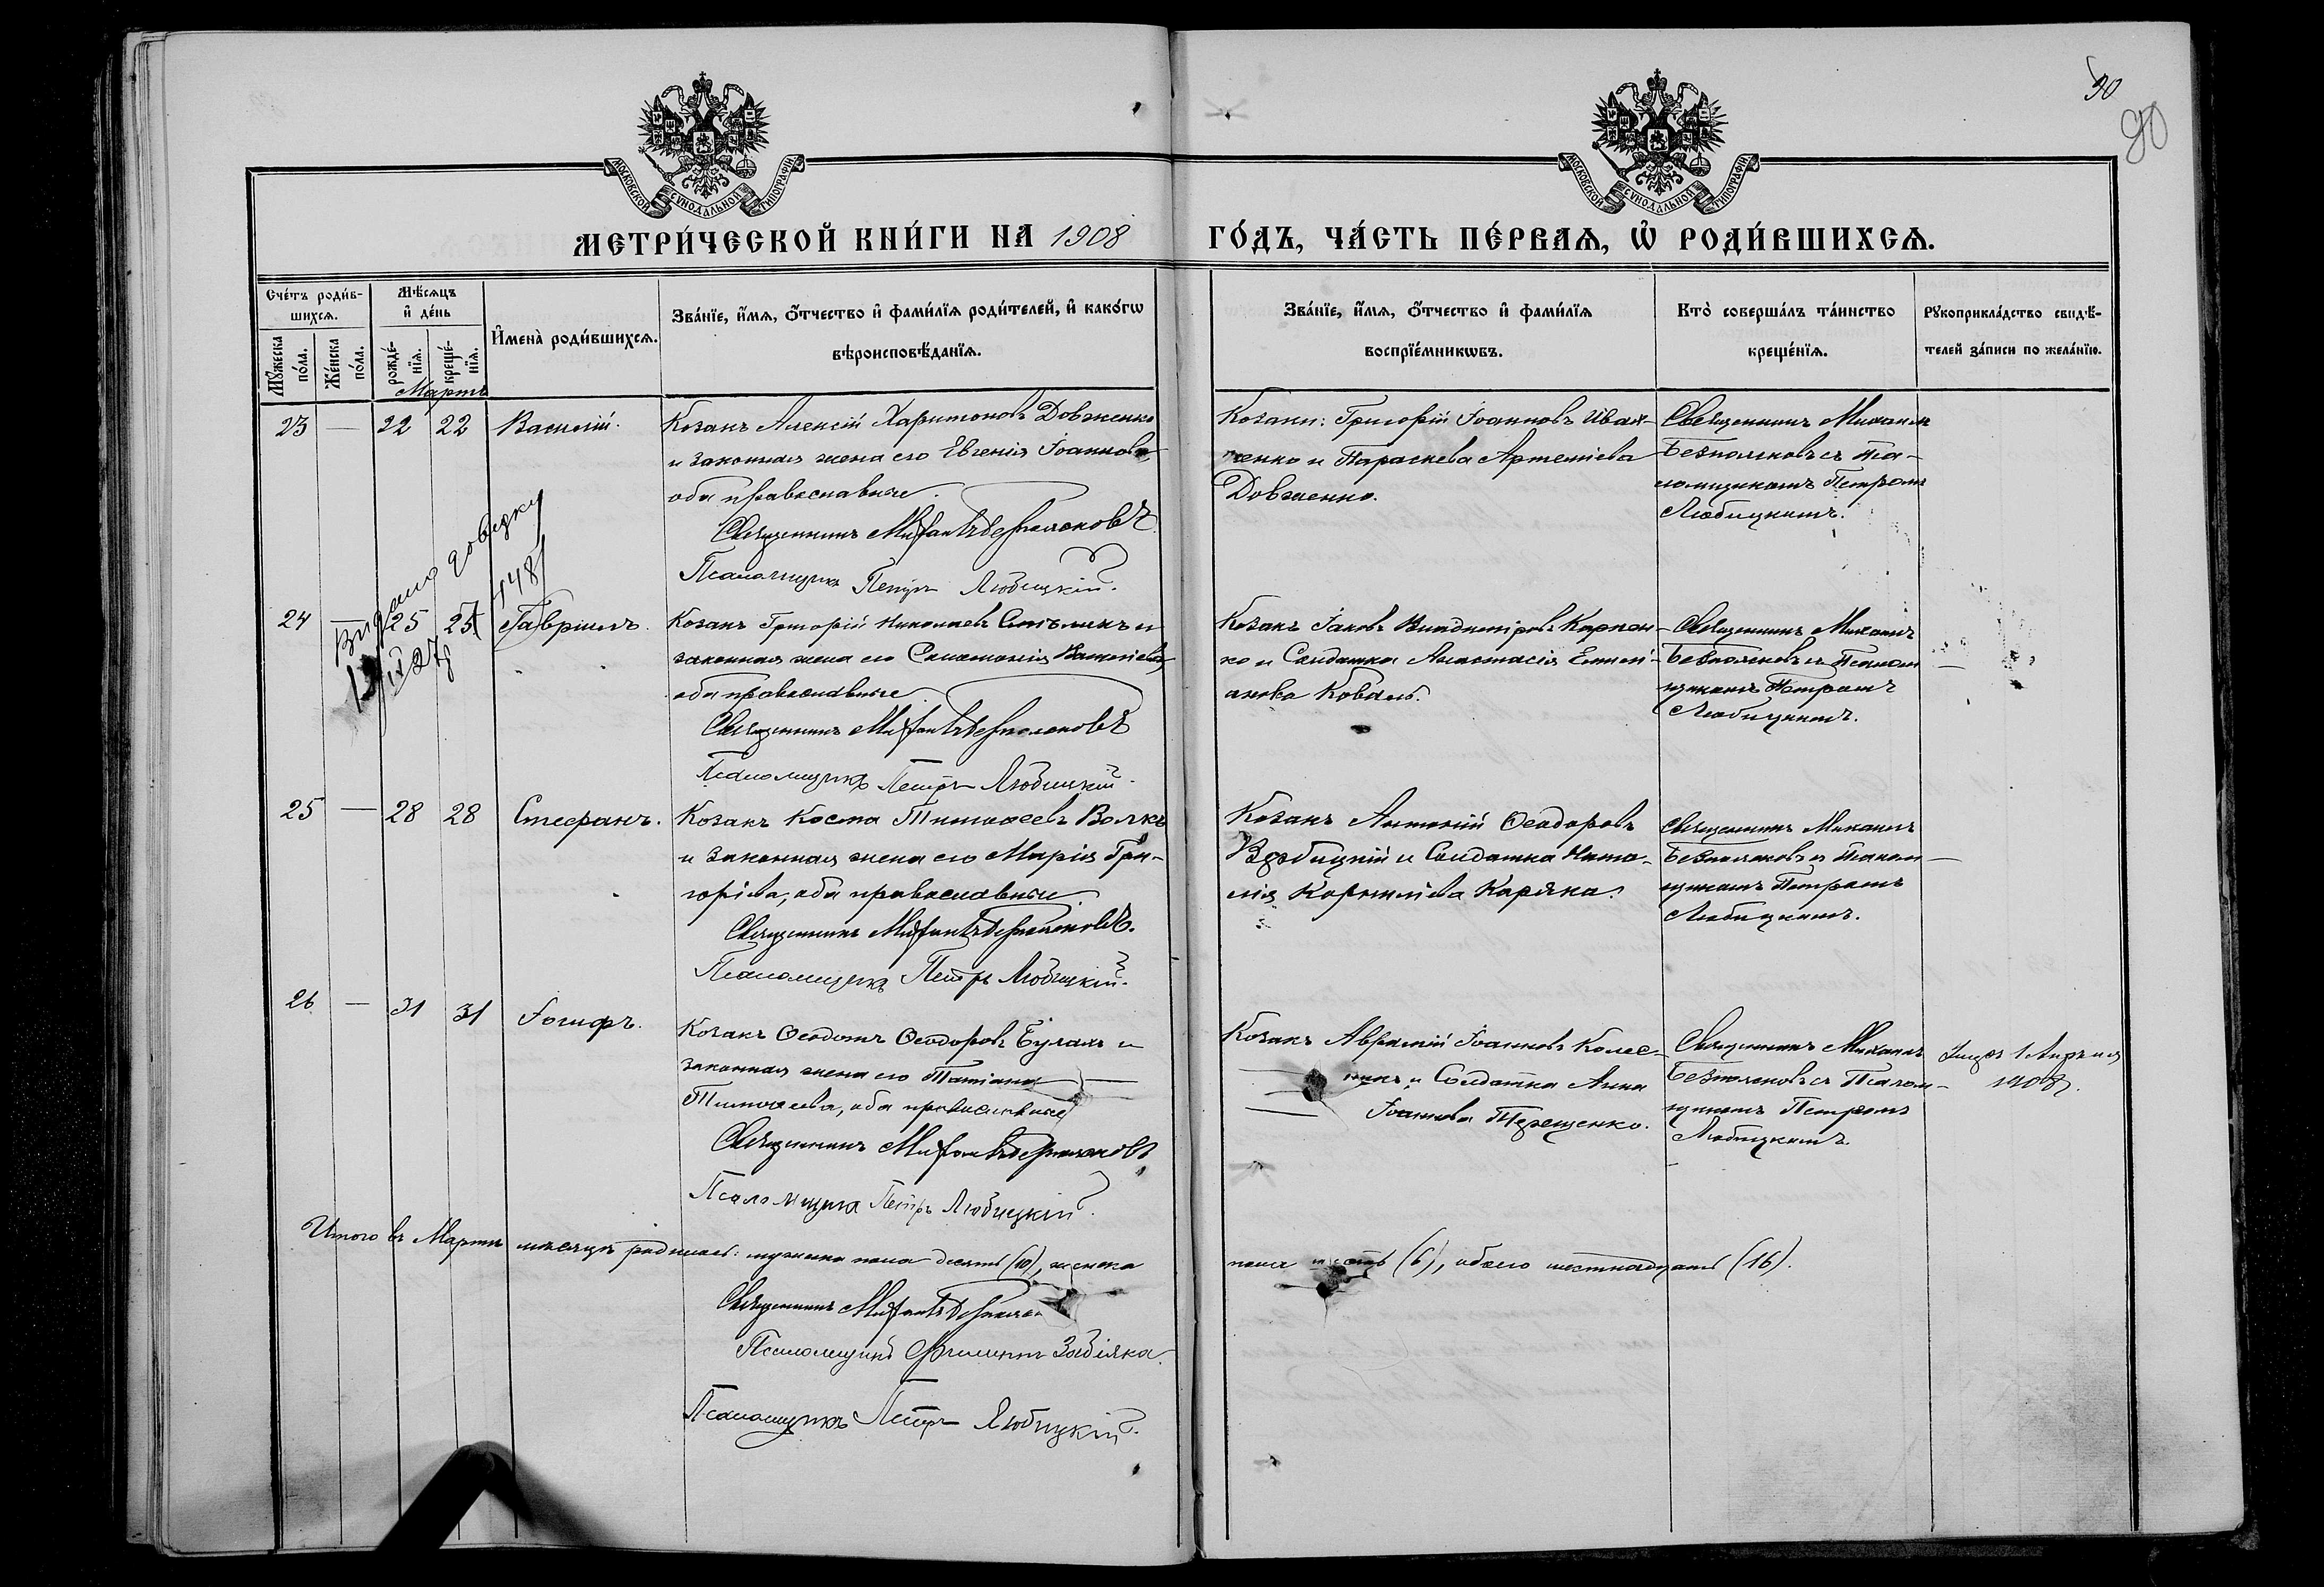 90
90
МОСКОВСКОЙ СУНОДАЛЬНОЙ ТИПОГРАФІИ
МОСКОВСКОЙ СУНОДАЛЬНОЙ ТИПОГРАФІИ
МЕТРИ́ЧЕСКОЙ КНИ́ГИ НА 1908 ГО́ДЪ, ЧА́СТЬ ПЕ́РВАѦ, Ѡ҆ РОДИ́ВШИХСѦ.
Сче́тъ роди́в-
шихсѧ.
Мꙋ́жеска по́ла.
Же́нска по́ла.
Мѣ́сѧцъ
и҆ де́нь
рожде́-
нїѧ.
креще́-
нїѧ.
И҆мена̀ роди́вшихсѧ.
Зва́нїе, и҆́мѧ, ѻ҆́тчество и҆ фами́лїѧ роди́телей, и҆ како́гѡ
вѣроисповѣ́данїѧ.
Зва́нїе, и҆́мѧ, ѻ҆́тчество и҆ фами́лїѧ
воспрїе́мникѡвъ.
Кто̀ соверша́лъ та́инство
креще́нїѧ.
Рꙋкоприкла́дство свидѣ́-
телей за́писи по жела́нїю.
Мартъ
23 — 22 22 Василій.
Козакъ Алексій Харитоновъ Довженко
и законная жена его Евгенія Іоаннова
оба православные.
Священникъ Михаилъ Безпоясковъ
Псаломщикъ Петръ Любицкій.
Козаки: Григорій Іоанновъ Ивах-
ненко и Параскева Артемієва
Довженко.
Священникъ Михаилъ
Безпоясковъ съ Пса-
ломщикомъ Петромъ
Любицкимъ.
Видано довідку
148
24 — 25 25 Гавріилъ.
Козакъ Григорій Николаевъ и
законная жена его Васильева
оба православные.
Священникъ Михаилъ Безпоясковъ
Псаломщикъ Петръ Любицкій.
Козакъ Іаковъ Владиміровъ Карпен-
ко и Солдатка Анастасія Емели-
анова Коваль.
Священникъ Михаилъ
Безпоясковъ съ Псалом-
щикомъ Петромъ
Любицкимъ.
25 — 28 28 Стефанъ.
Козакъ Косма Тимоѳеевъ Волкъ
и законная жена его Марія Гри-
горіева, оба православные.
Священникъ Михаилъ Безпоясковъ.
Псаломщикъ Петръ Любицкій.
Козакъ Антоній Ѳеодоровъ
и Солдатка Ната-
лія Корниліева Каряка.
Священникъ Михаилъ
Безпоясковъ съ Псалом-
щикомъ Петромъ
Любицкимъ.
26 — 31 31 Іосифъ.
Козакъ Ѳеодотъ Ѳеодоровъ Булахъ и
законная жена его Татіана
Тимоѳеева, оба православные
Священникъ Михаилъ Безпоясковъ
Псаломщикъ Петръ Любицкій.
Козакъ Аврамій Іоанновъ Колес-
никъ и Солдатка Анна
Іоаннова Терещенко.
Священникъ Михаилъ
Безпоясковъ съ Псалом-
щикомъ Петромъ
Любицкимъ.
1 Апрѣля
1908
Итого въ Мартѣ мѣсяцѣ родилось: мужеска пола десять (10), женска
пола шесть (6), обоего шестнадцать (16).
Священникъ Михаилъ
Псаломщикъ Филиппъ Забіяка.
Псаломщикъ Петръ Любицкій.